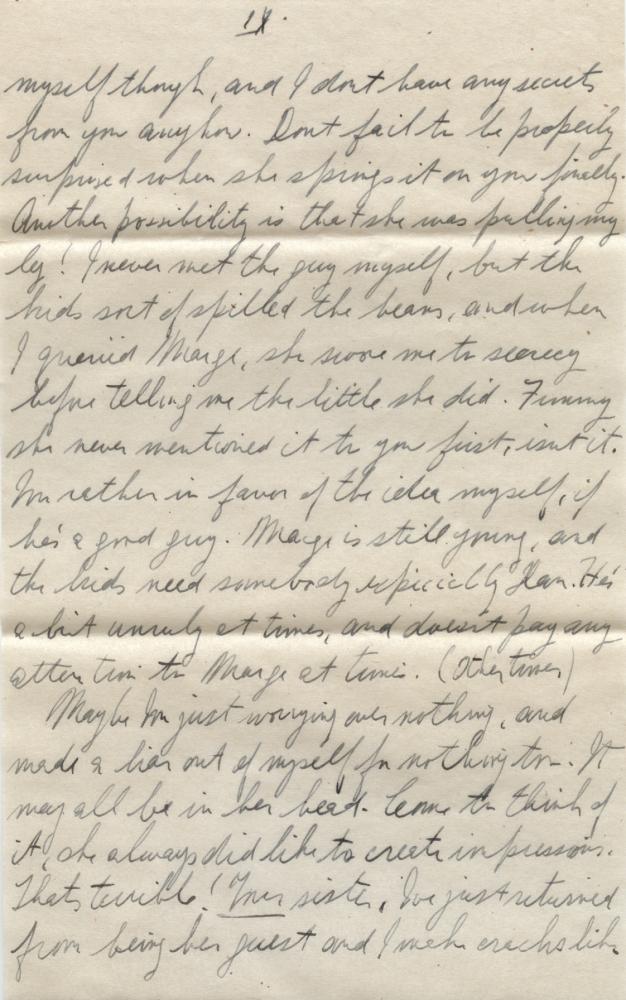 IX.
myself though, and I dont have any secrets
from you anyhow. Dont fail to be properly
surprised when she springs it on you finally.
Another possibility is that she was pulling my
leg! I never met the guy myself, but the
kids sort of spilled the beans, and when
I queried Marge, she swore me to secrecy
before telling me the little she did. Funny
she never mentioned it to you first, isnt it.
Im rather in favor of the idea myself, if
he's a good guy. Marge is still young, and
the kids need somebody especially Alan. He's
a bit unruly at times, and doesnt pay any
attention to Marge at times. (Other times)
Maybe Im just worrying over nothing, and
made a liar out of myself for nothing too. It
may all be in her head. Come to think of
it, she always did like to create impressions.
Thats terrible! Your sister, Ive just returned
from being her guest and I make cracks like